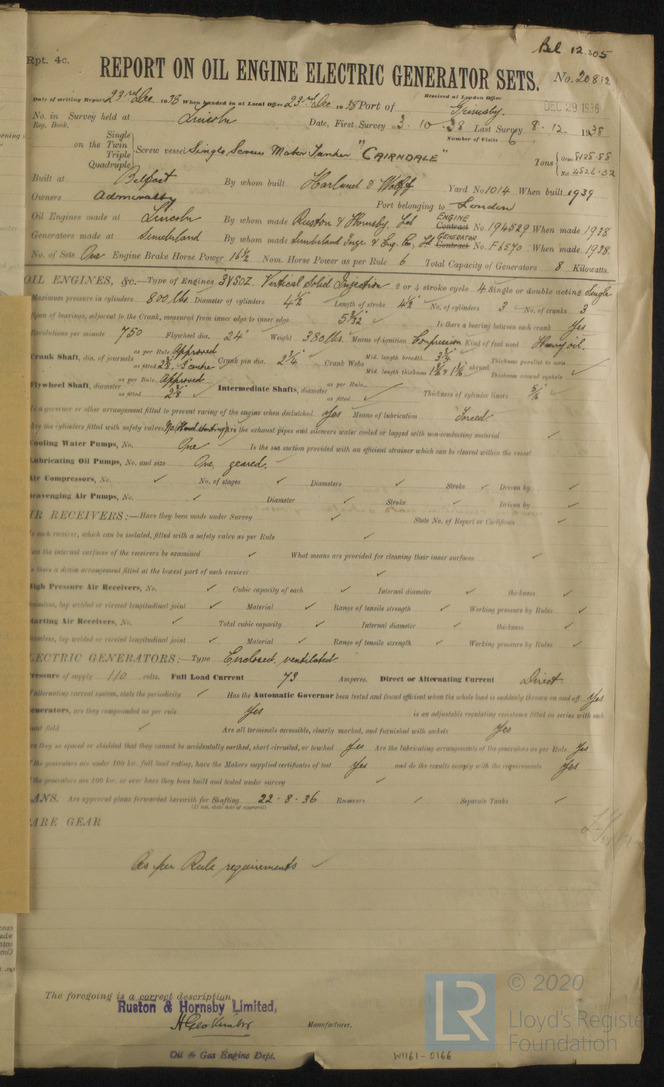 Bel 12305
Rpt. 4c.
REPORT ON OIL ENGINE ELECTRIC GENERATOR SETS.
No. 20812
Received at London Office
DEC 29 1938
Date of writing Report 23rd Dec 1938 When handed in at Local Office 23rd Dec 1938 Port of Grimsby.
No. in Survey held at Lincoln Date, First Survey 3. 10. 38 Last Survey 8. 12. 1938
Reg. Book. Number of Visits 6
on the Single Twin Triple Quadruple Screw vessel Single Screw Motor Tanker "CAIRNDALE" Tons Gross 8128.88
Net 4826.32
Built at Belfast By whom built Harland & Wolff Yard No 1014 When built 1939
Owners Admiralty Port belonging to London
Oil Engines made at Lincoln By whom made Ruston & Hornsby, Ltd ENGINE Contract No. 194529 When made 1938
Generators made at Sunderland By whom made Sunderland Forge & Eng. Co, Ld GENERATOR Contract No. F6570 When made 1938.
No. of Sets One Engine Brake Horse Power 16½ Nom. Horse Power as per Rule 6 Total Capacity of Generators 8 Kilowatts.
OIL ENGINES, &c.—Type of Engines 3VSOZ. Vertical Solid Injection 2 or 4 stroke cycle 4 Single or double acting Single
Maximum pressure in cylinders 800 lbs. Diameter of cylinders 4½ Length of stroke 4½ No. of cylinders 3 No. of cranks 3
Span of bearings, adjacent to the Crank, measured from inner edge to inner edge Is there a bearing between each crank Yes
Revolutions per minute 750 Flywheel dia. 24" Weight 380 lbs. Means of ignition Compression Kind of fuel used Heavy oil.
Crank Shaft, dia. of journals as per Rule Approved as fitted Crank pin dia. 2¾" Crank Webs Mid. length breadth Mid. length thickness shrunk Thickness parallel to axis
Thickness around eyehole
Flywheel Shaft, diameter as per Rule Approved as fitted Intermediate Shafts, diameter as per Rule as fitted Thickness of cylinder liners
Is a governor or other arrangement fitted to prevent racing of the engine when declutched Yes Means of lubrication Forced
Are the cylinders fitted with safety valves No. Hand starting Are the exhaust pipes and silencers water cooled or lagged with non-conducting material ✓
Cooling Water Pumps, No. One Is the sea suction provided with an efficient strainer which can be cleared within the vessel
Lubricating Oil Pumps, No. and size One, geared. ✓
Air Compressors, No. ✓ No. of stages ✓ Diameters ✓ Stroke ✓ Driven by ✓
Scavenging Air Pumps, No. ✓ Diameter ✓ Stroke ✓ Driven by ✓
AIR RECEIVERS:—Have they been made under Survey ✓ State No. of Report or Certificate ✓
Is each receiver, which can be isolated, fitted with a safety valve as per Rule ✓
Can the internal surfaces of the receivers be examined ✓ What means are provided for cleaning their inner surfaces ✓
Is there a drain arrangement fitted at the lowest part of each receiver ✓
High Pressure Air Receivers, No. ✓ Cubic capacity of each ✓ Internal diameter ✓ thickness ✓
Seamless, lap welded or riveted longitudinal joint ✓ Material ✓ Range of tensile strength ✓ Working pressure by Rules ✓
Starting Air Receivers, No. ✓ Total cubic capacity ✓ Internal diameter ✓ thickness ✓
Seamless, lap welded or riveted longitudinal joint ✓ Material ✓ Range of tensile strength ✓ Working pressure by Rules ✓
ELECTRIC GENERATORS:—Type Enclosed, ventilated
Pressure of supply 110 volts. Full Load Current 73 Amperes. Direct or Alternating Current Direct
If alternating current system, state the periodicity ✓ Has the Automatic Governor been tested and found efficient when the whole load is suddenly thrown on and off Yes
Generators, are they compounded as per rule Yes is an adjustable regulating resistance fitted in series with each
shunt field ✓ Are all terminals accessible, clearly marked, and furnished with sockets Yes
Are they so spaced or shielded that they cannot be accidentally earthed, short circuited, or touched Yes Are the lubricating arrangements of the generators as per Rule Yes
If the generators are under 100 kw. full load rating, have the Makers supplied certificates of test Yes and do the results comply with the requirements Yes
If the generators are 100 kw. or over have they been built and tested under survey ✓
PLANS. Are approved plans forwarded herewith for Shafting 22. 8. 36 Receivers ✓ Separate Tanks ✓
(If not, state date of approval)
SPARE GEAR
As per Rule requirements ✓
The foregoing is a correct description,
Ruston & Hornsby Limited,
Manufacturer.
Oil & Gas Engine Dept.
W1161-0166
LR
© 2020
Lloyd's Register
Foundation